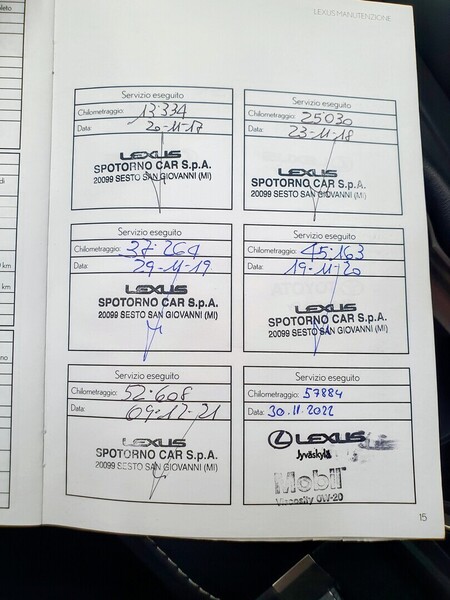 LEXUS MANUTENZIONE
Servizio eseguito
Chilometraggio: 13.334
Data: 20-11-17
LEXUS
SPOTORNO CAR S.p.A.
20099 SESTO SAN GIOVANNI (MI)
Servizio eseguito
Chilometraggio: 25.030
Data: 23-11-18
LEXUS
SPOTORNO CAR S.p.A.
20099 SESTO SAN GIOVANNI (MI)
Servizio eseguito
Chilometraggio: 37.264
Data: 29-11-19
LEXUS
SPOTORNO CAR S.p.A.
20099 SESTO SAN GIOVANNI (MI)
Servizio eseguito
Chilometraggio: 45.163
Data: 19-11-20
LEXUS
SPOTORNO CAR S.p.A.
20099 SESTO SAN GIOVANNI (MI)
Servizio eseguito
Chilometraggio: 52.608
Data: 09-12-21
LEXUS
SPOTORNO CAR S.p.A.
20099 SESTO SAN GIOVANNI (MI)
Servizio eseguito
Chilometraggio: 57884
Data: 30.11.2022
LEXUS
Jyväskylä
Mobil
Viscosity 0W-20
15
km
km